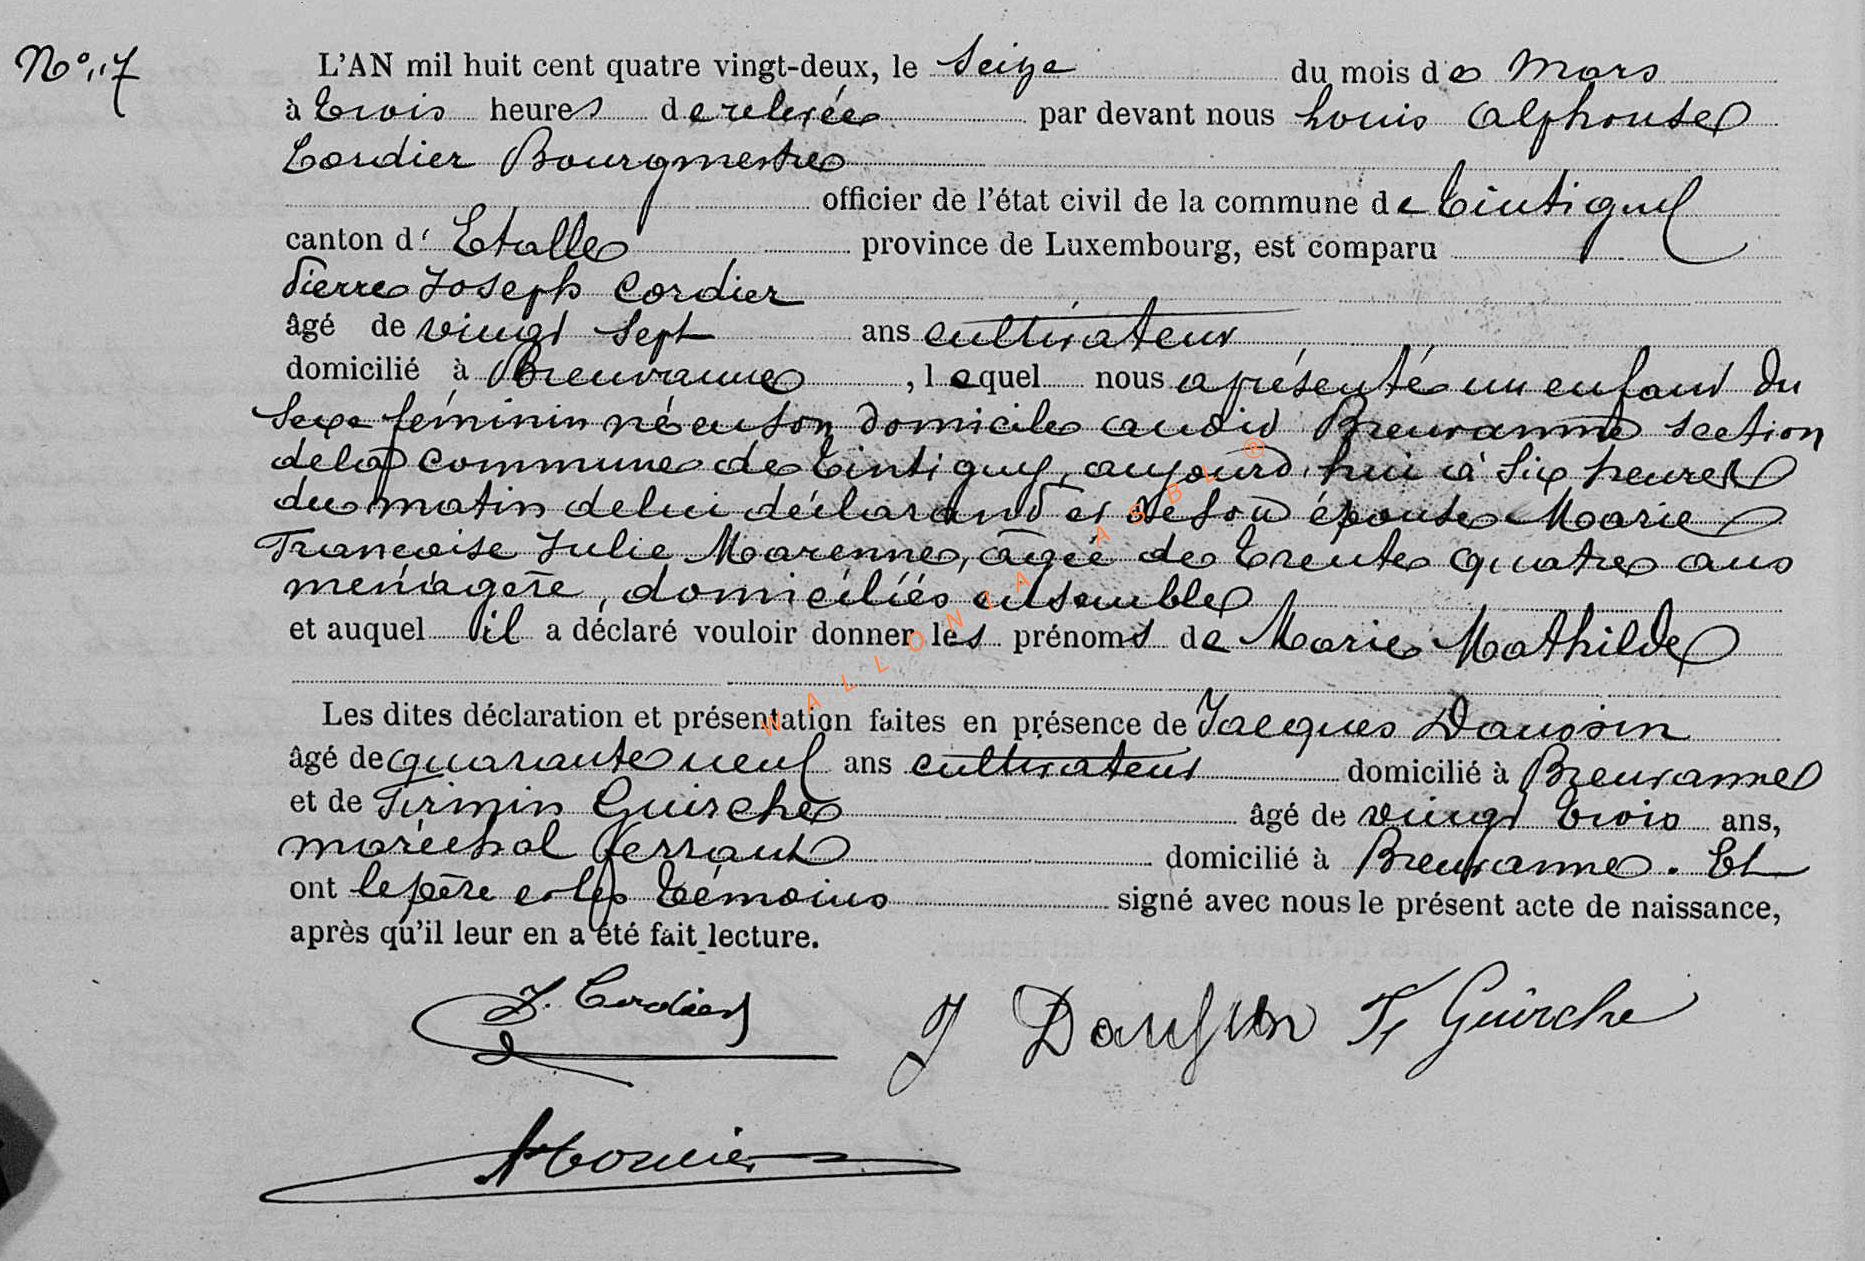 No 17
L'AN mil huit cent quatre vingt-deux, le Seize du mois de Mars
à trois heures de relevée par devant nous Louis Alphonse
Cordier Bourgmestre
officier de l'état civil de la commune de Tintigny
canton d'Etalle province de Luxembourg, est comparu
Pierre Joseph Cordier
âgé de vingt sept ans cultivateur
domicilié à Breuvanne, lequel nous a présenté un enfant du
Sexe féminin né en son domicile audit Breuvanne section
de la commune de Tintigny, aujourd'hui à six heures
du matin de lui déclarant et de son épouse Marie
Françoise Julie Marenne, âgée de trente quatre ans
ménagère, domiciliés ensemble
et auquel il a déclaré vouloir donner les prénoms de Marie Mathilde
Les dites déclaration et présentation faites en présence de Jacques Daussin
âgé de quarante neuf ans cultivateur domicilié à Breuvanne
et de Firmin Guirche âgé de vingt trois ans,
maréchal ferrant domicilié à Breuvanne. Et
ont le père et les témoins signé avec nous le présent acte de naissance,
après qu'il leur en a été fait lecture.
J. Cordier J Daussin F Guirche
WALLONIA ASBL ®